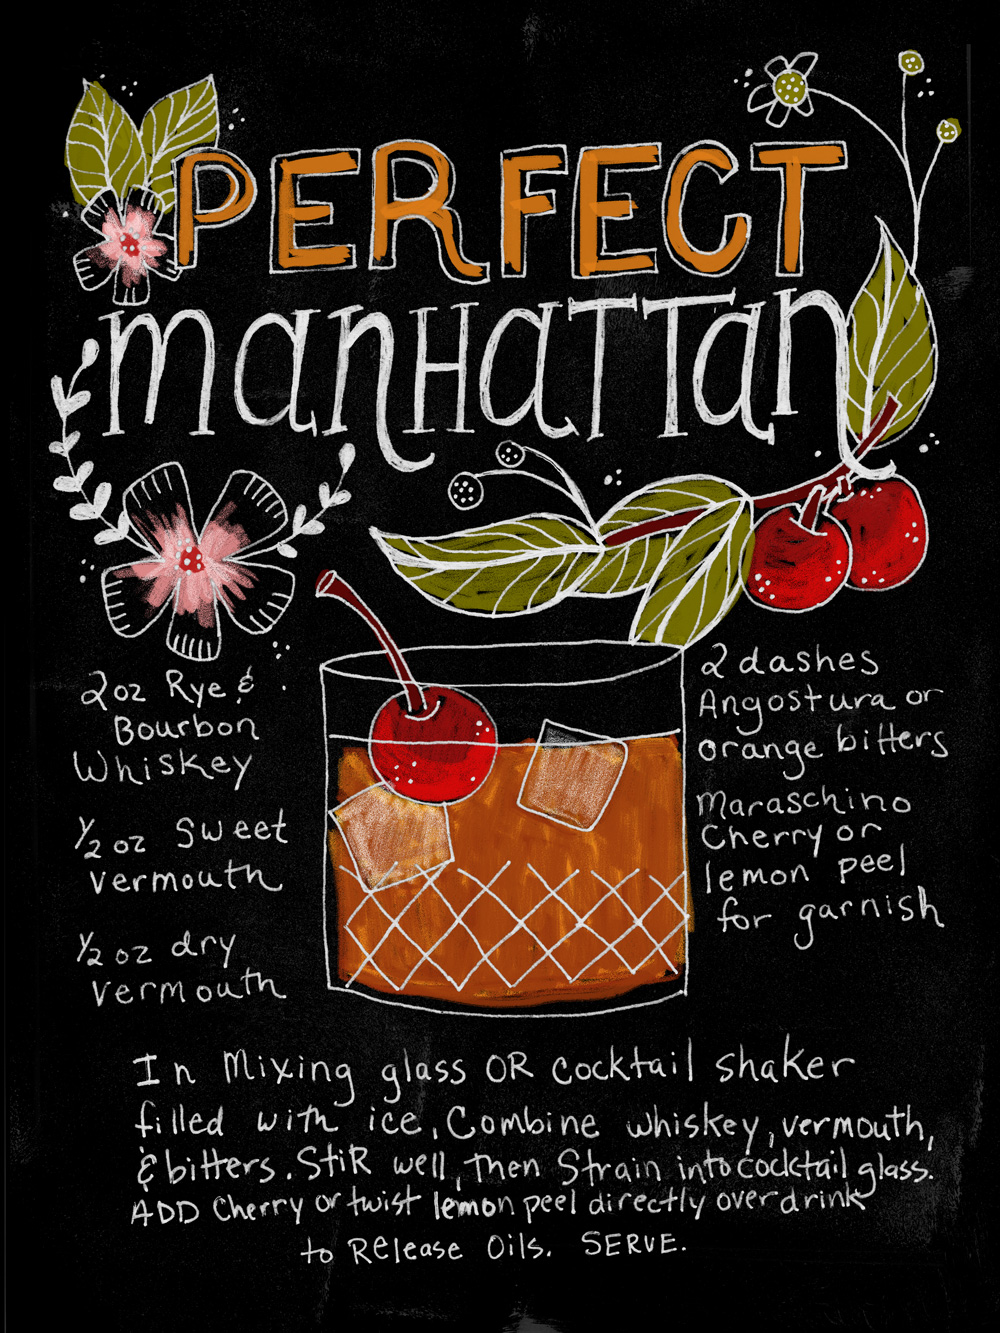 PERFECT
manHaTTan
2oz Rye &
Bourbon
Whiskey
½ oz Sweet
vermouth
½ oz dry
vermouth
2 dashes
Angostura or
orange bitters
Maraschino
Cherry or
lemon peel
for garnish
In Mixing glass OR cocktail shaker
filled with ice, Combine whiskey, vermouth,
& bitters. StiR well, Then Strain into cocktail glass.
ADD Cherry or twist lemon peel directly over drink
to Release Oils. SERVE.